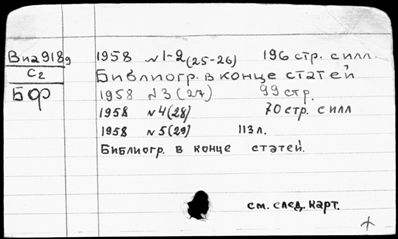 Виа918д 1958 №1-2(25-26) 196 стр. с илл.
С2 Библиогр. в конце статей
БФ 1958 №3(27) 99 стр.
1958 №4(28) 70 стр. с илл
1958 №5(29) 113 л.
Библиогр. в конце статей.
см. след. карт.